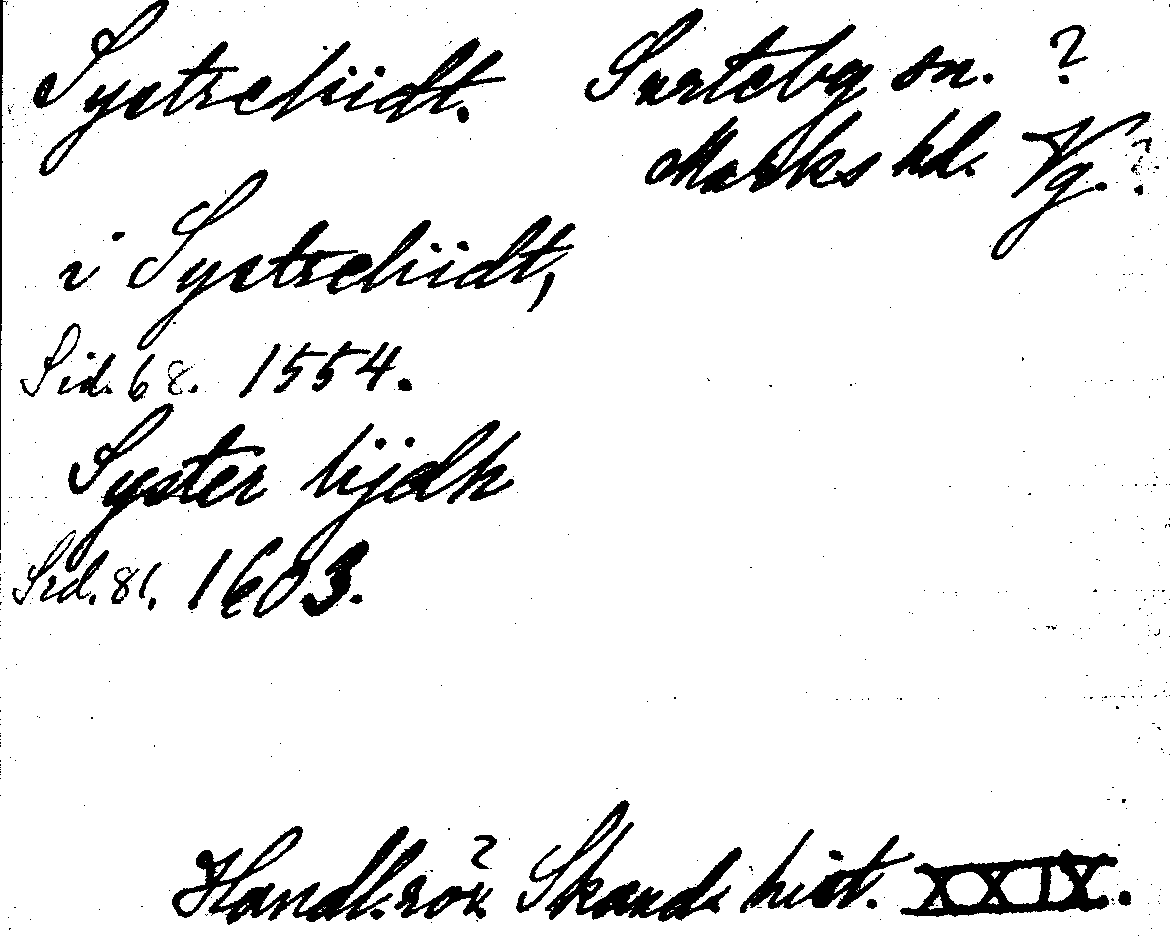 Systreliidt. Surteby sn. ?
Marks hd. Vg. ?
i Systreliidt,
Sid. 68. 1554.
Syster lijdh
Sid. 81. 1603.
Handl. rör. ? Skand. hist. XXIX.